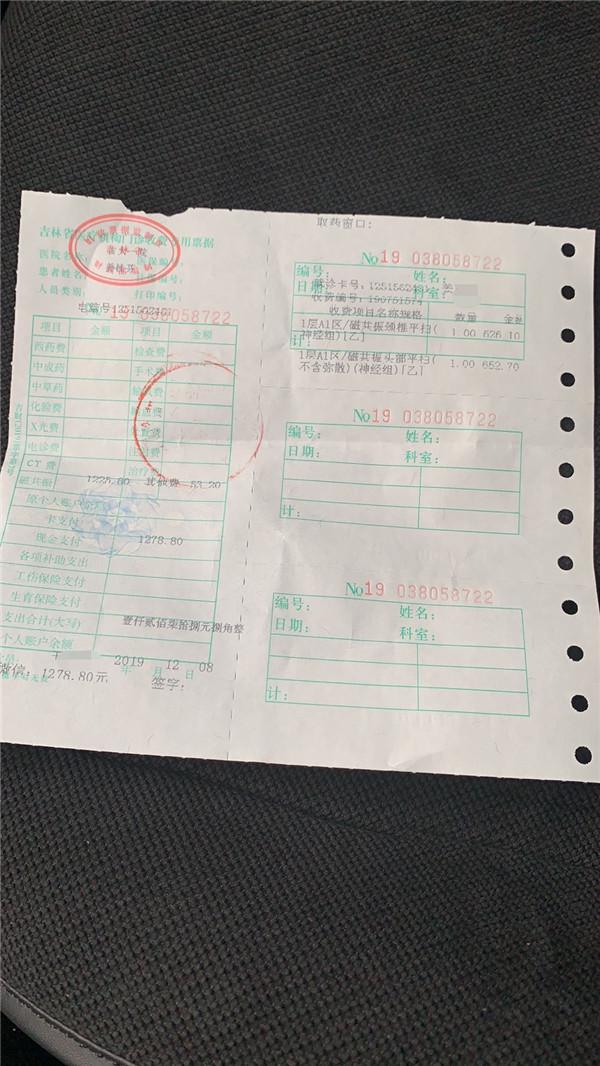 取药窗口:
吉林省
用票据
医院名
医保编
患者姓名:
人员类别:
打印编号:
No 19 038058722
项目 金额 项目 金额
西药费 检查费
中成药 手术费
中草药
化验费
X光费
电诊费
CT 费 治疗费
磁共振 1225.60 其他费 53.20
原个人账户余
卡支付
现金支付 1278.80
各项补助支出
工伤保险支付
生育保险支付
支出合计(大写) 壹仟贰佰柒拾捌元捌角整
个人账户余额
2019 年 12 月 08 日
微信: 1278.80元 签字:
No19 038058722
编号: 姓名:
日期: 科室:
收费项目名称规格 数量 金
1层A1区/磁共振颈椎平扫( 1.00 626.10
神经组)[乙]
1层A1区/磁共振头部平扫( 1.00 652.70
不含弥散)(神经组)[乙]
计:
No19 038058722
编号: 姓名:
日期: 科室:
计:
No19 038058722
编号: 姓名:
日期: 科室:
计: